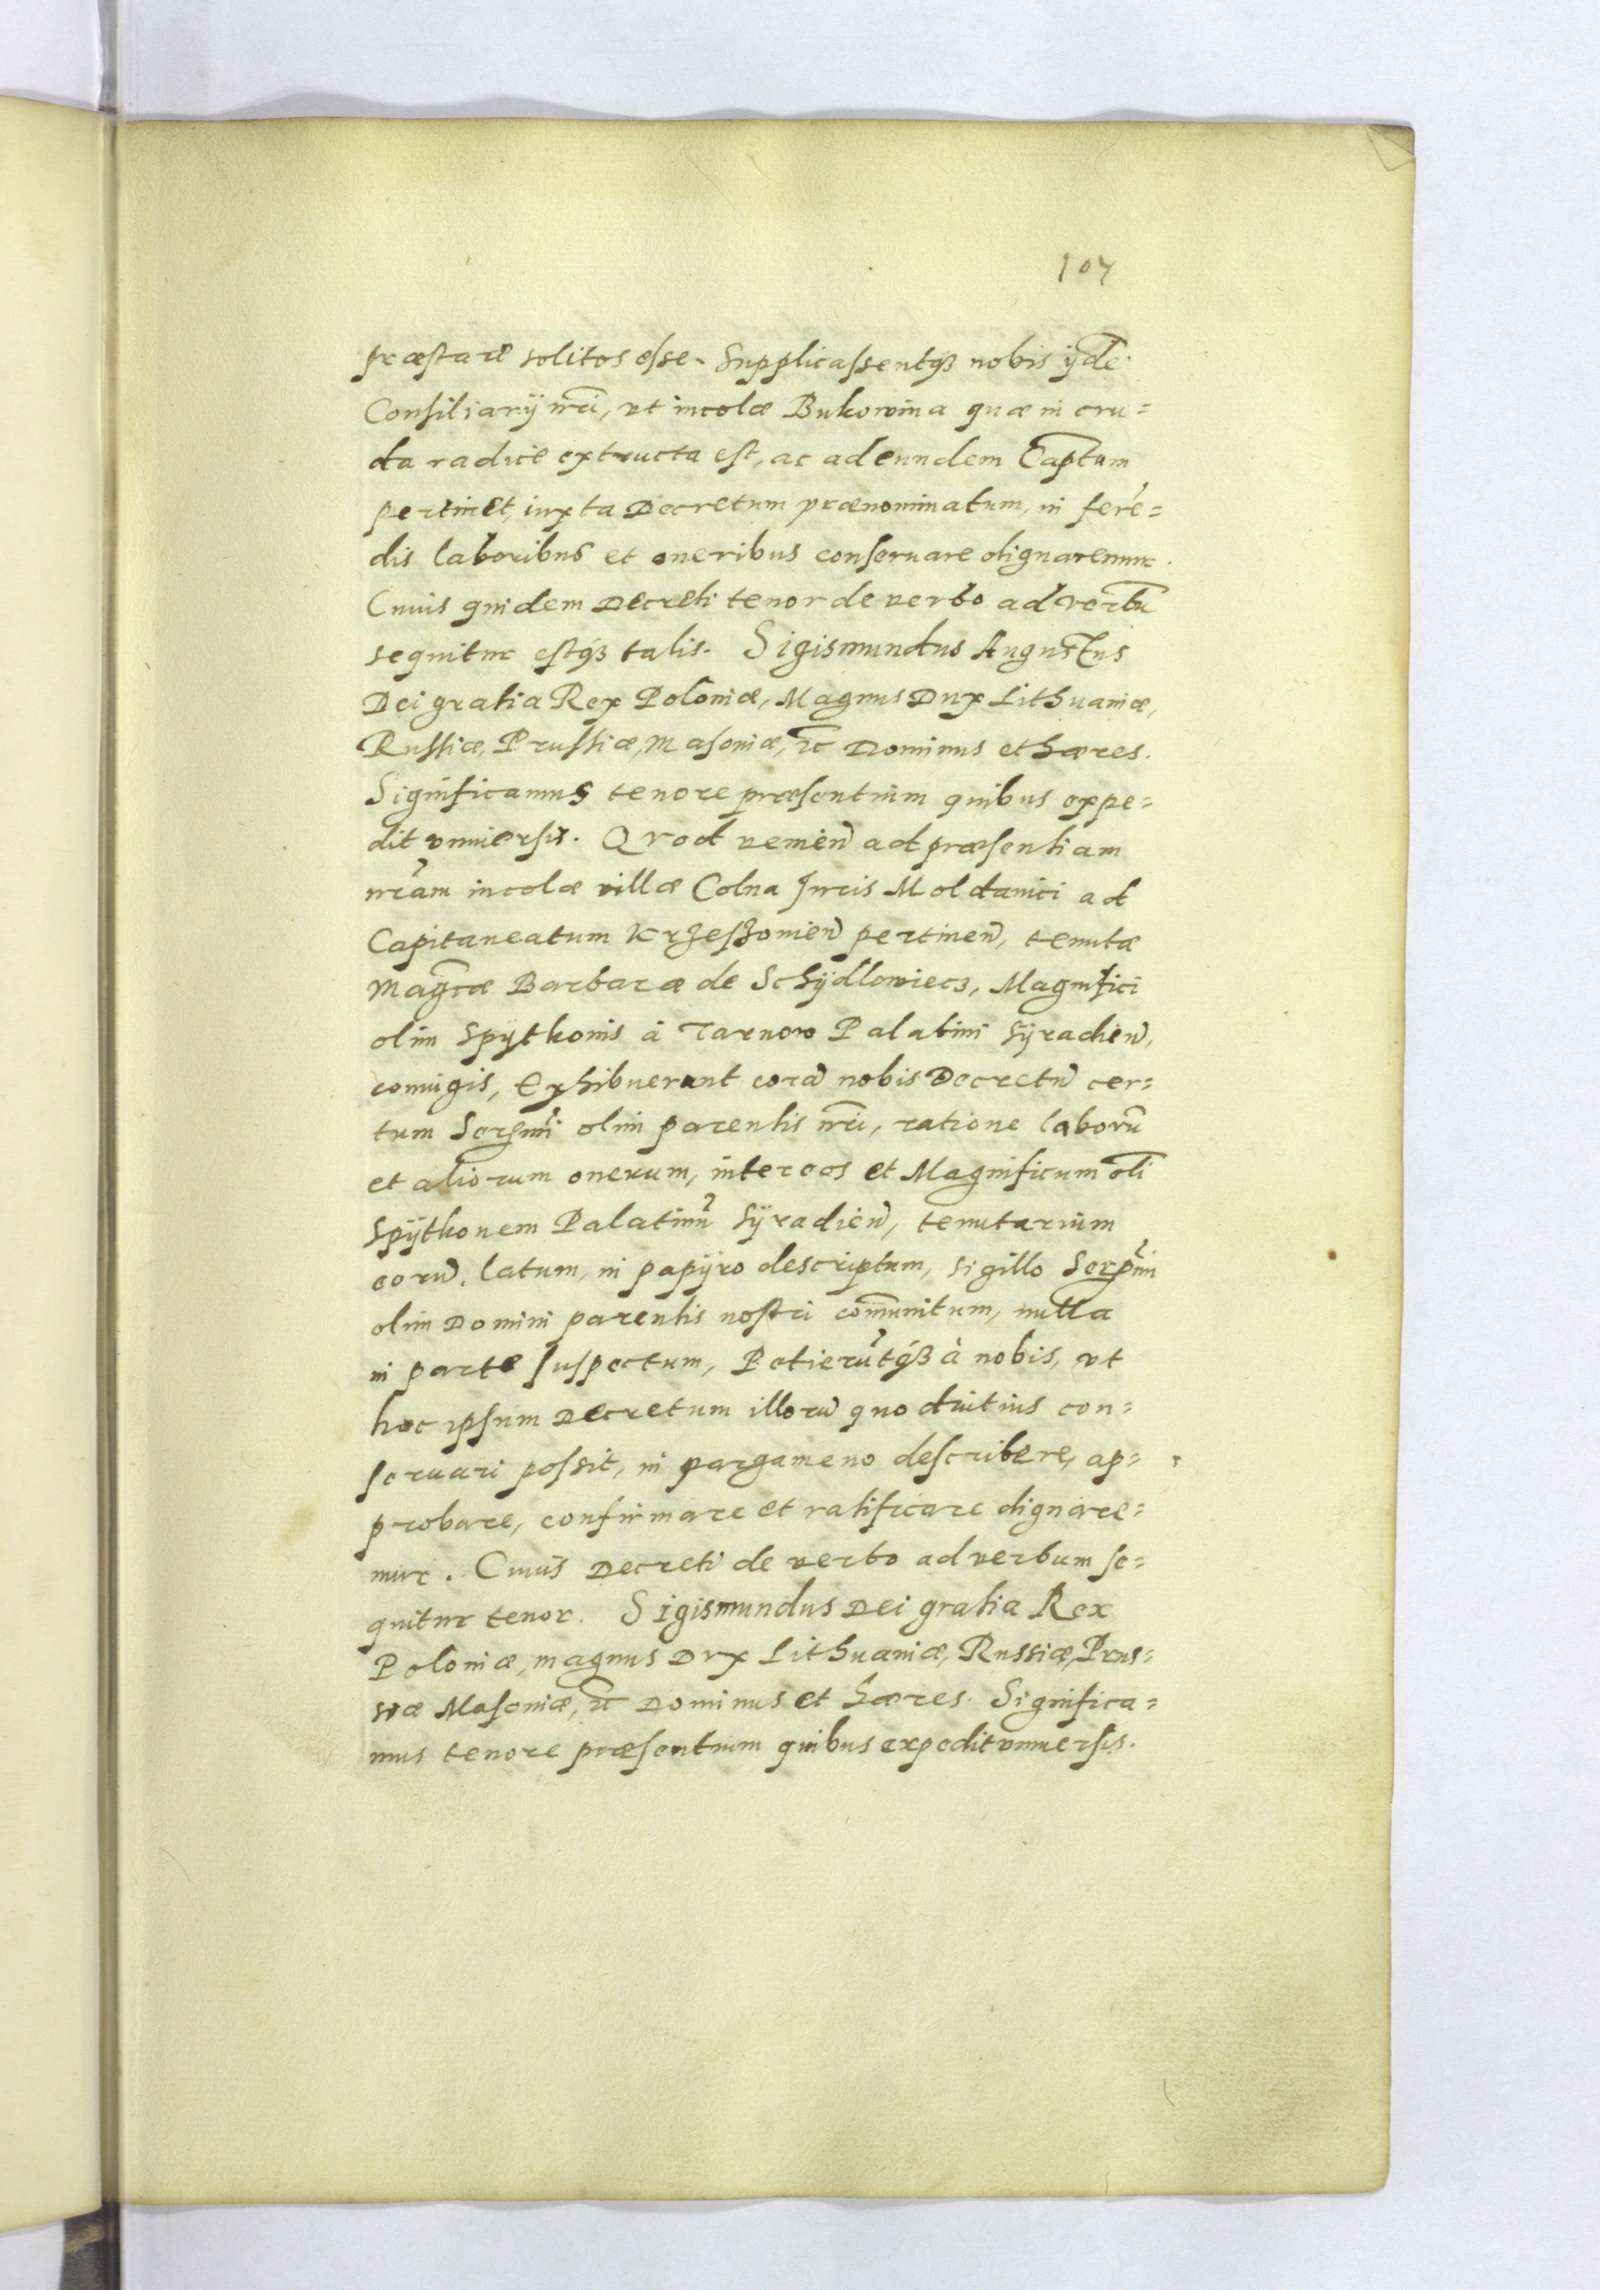 107
præstare solitos esse. Supplicassentq3 nobis ijdē
Consiliarij nr̄i, vt incolæ Bukowina quæ in cru=
da radice extructa est, ac ad eundem Cap̄tum
pertinet, iuxta Decretum prænominatum, in ferē=
dis laboribus et oneribus conseruare dignaremur.
Cuius quidem Decreti tenor de verbo ad verbū
sequitur estq3 talis. Sigismundus Augustus
Dei gratia Rex Poloniæ, Magnus Dux Lithuaniæ,
Russiæ, Prussiæ, Masoniæ, etc̄ Dominus et hæres.
Significamus tenore præsentium quibus expe=
dit vniuersis. Qvod venien̄ ad præsentiam
nr̄am incolæ villæ Colna Juris Moldauici ad
Capitaneatum Krzeszouien̄ pertinen̄, tenutæ
Maḡcæ Barbaræ de Schÿdlowiecz, Magnifici
olim Spÿtkonis à Tarnow Palatini Sÿradien̄,
coniugis, Exhibuerunt corā nobis Decretū cer=
tum Serenmi olim parentis nr̄i, ratione laborū
et aliorum onerum, inter eos et Magnificum olī
Spÿtkonem Palatinū Sÿradien̄, tenutarium
eorū. latum, in papÿro descriptum, sigillo Serenmi
olim Domini parentis nostri com̄unitum, nulla
in parte suspectum, Petierūtq3 à nobis, vt
hoc ipsum Decretum illorū quo diutius con=
seruari possit, in pargameno describere, ap=
probare, confirmare et ratificare dignare=
mur. Cuius Decreti de verbo ad verbum se=
quitur tenor. Sigismundus Dei gratia Rex
Poloniæ, magnus Dvx Lithuaniæ, Russiæ, Prus=
siæ Masoniæ, etc̄ Dominus et hæres. Significa=
mus tenore præsentium quibus expedit vniuersis.